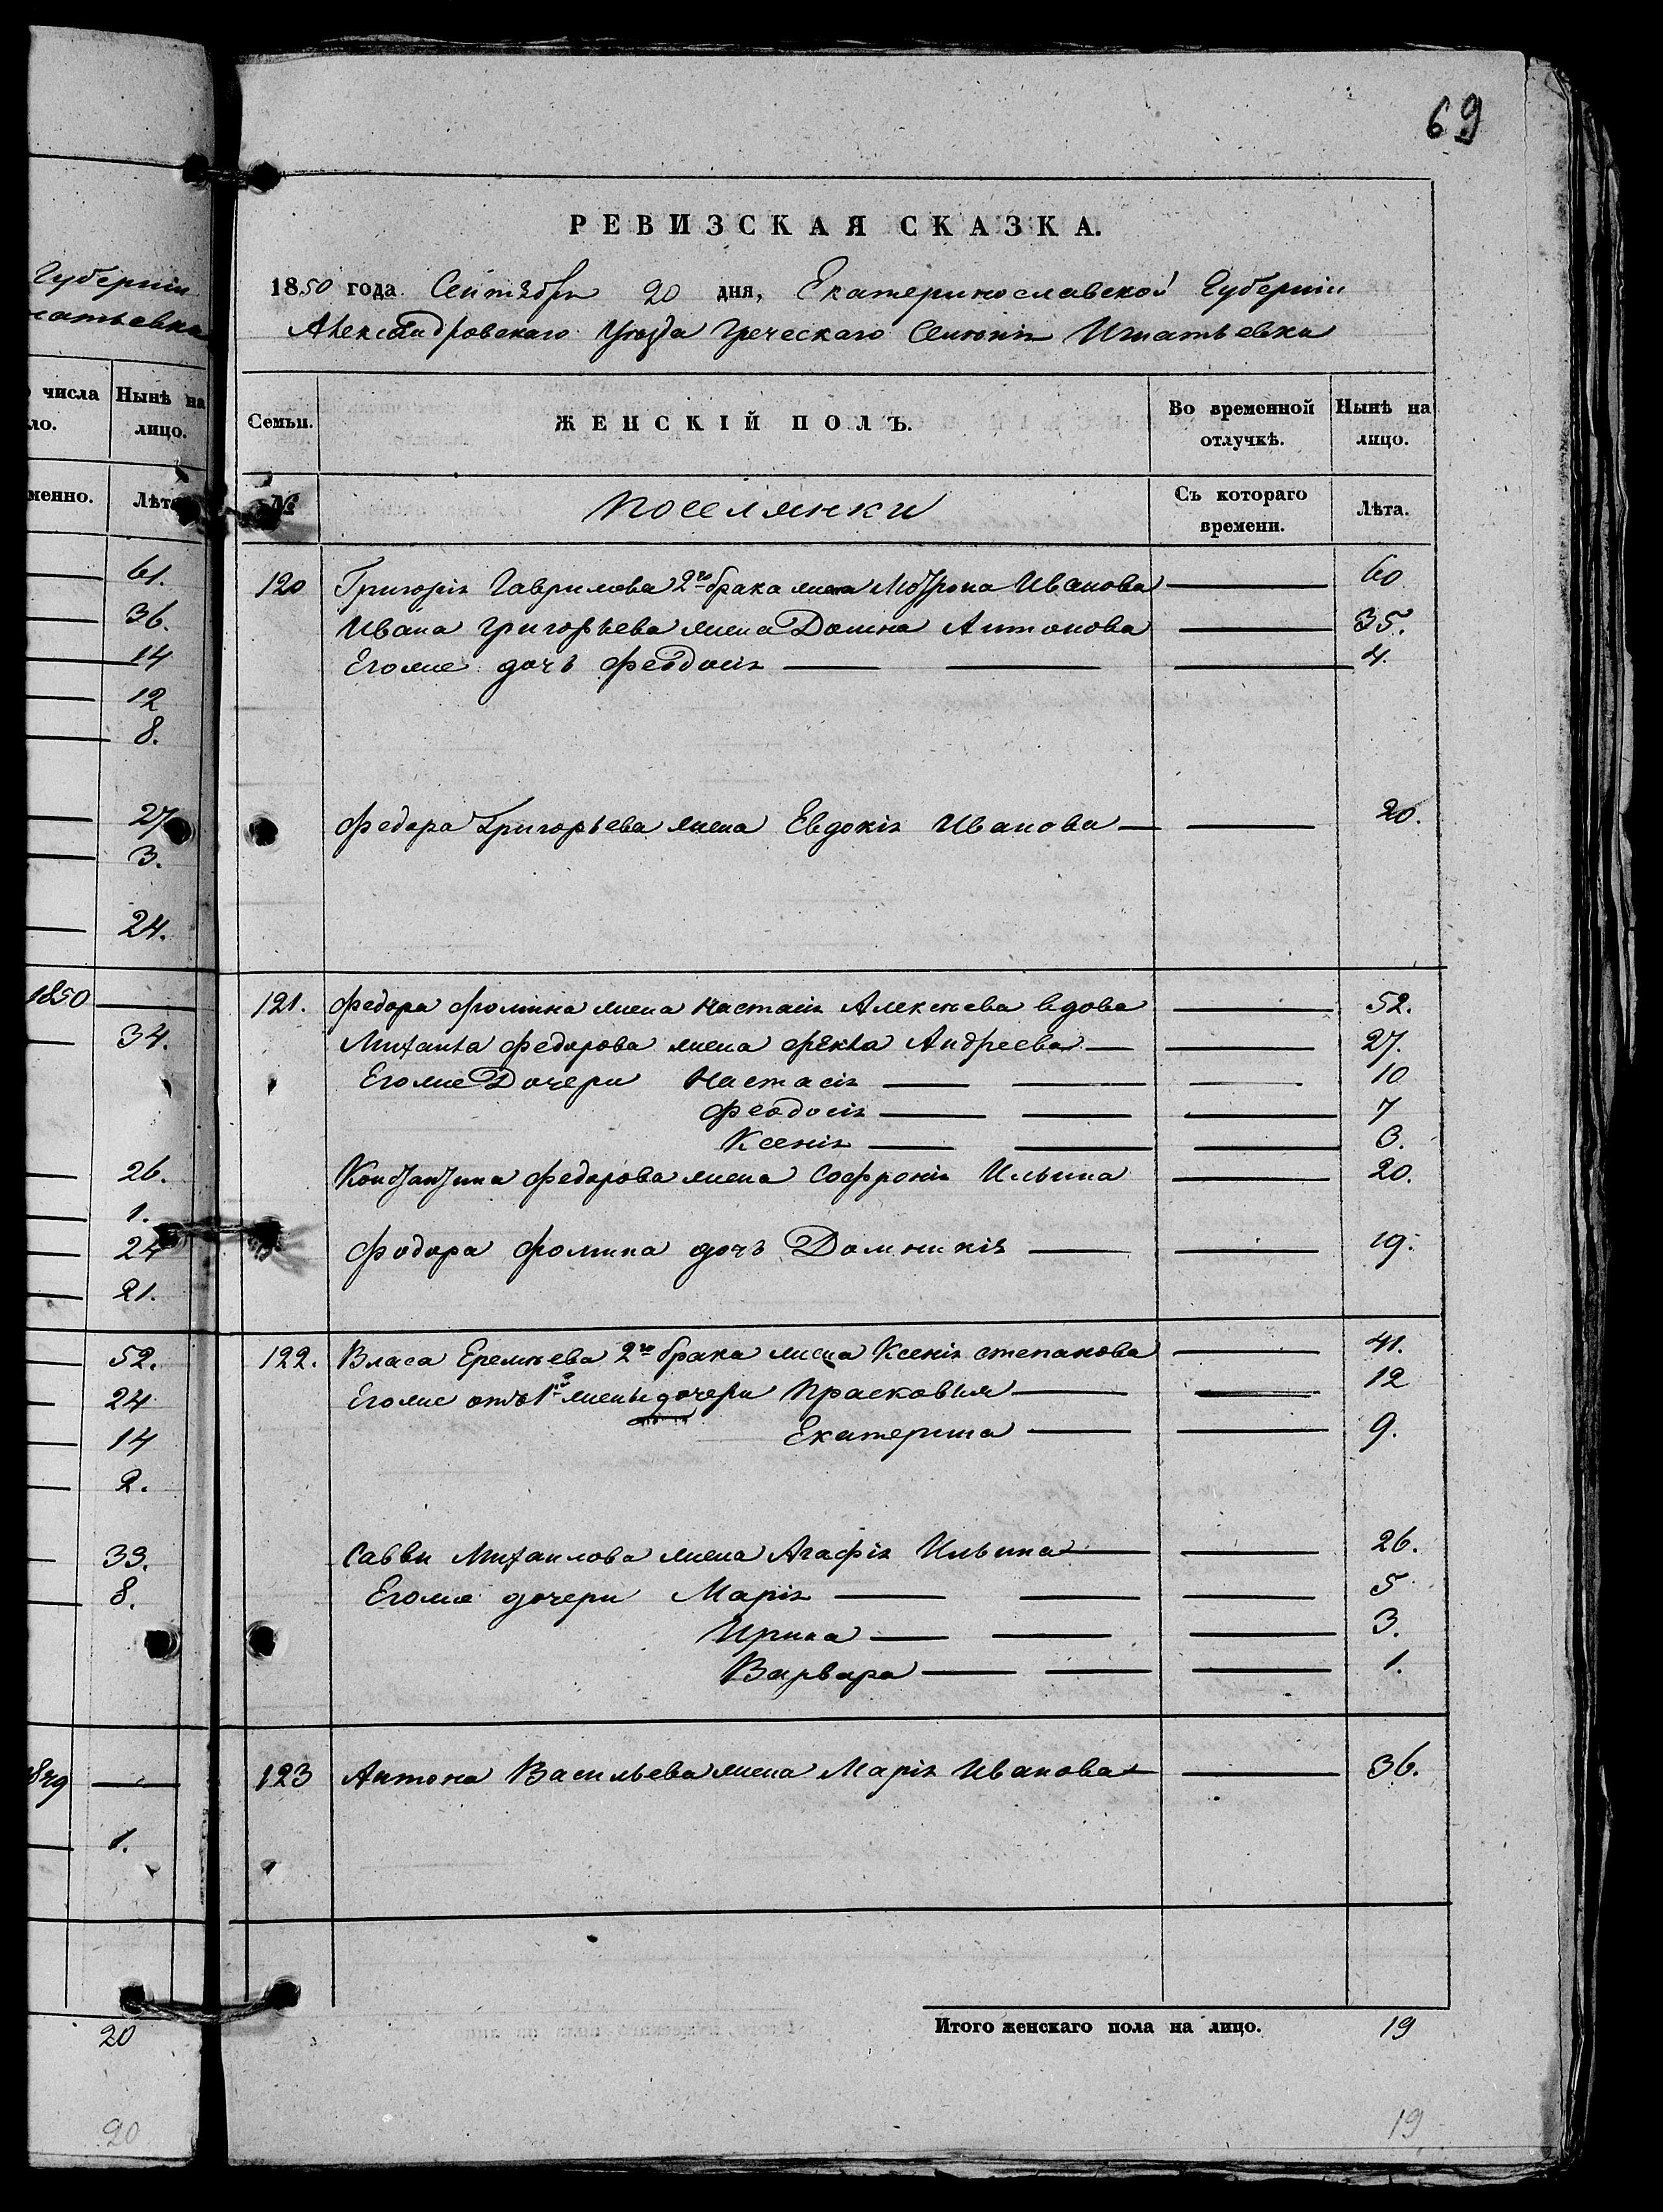 69
Губерніи
натьевка
числа Нынѣ на
ло. лицо.
менно. Лѣта
61.
36.
14
12
8.
27
3.
24.
1850
34.
26.
1.
24
21.
52.
24
14
2.
33.
8.
1849
1.
20
20
РЕВИЗСКАЯ СКАЗКА.
1850 года Сентября 20 дня, Екатеринославской Губерніи
Александровскаго Уѣзда Греческаго Селенія Игнатьевки
Семьи. ЖЕНСКІЙ ПОЛЪ. Во временной отлучкѣ. Нынѣ на лицо.
№ Поселянки Съ котораго времени. Лѣта.
120 Григорія Гаврилова 2го брака жена Мотрона Иванова 60
Ивана Григорьева жена Домна Антонова 35.
Егоже дочь Феодосія 4.
Федора Григорьева жена Евдокія Иванова 20.
121. Федора Фомина жена Настасія Алексѣева вдова 52.
Михаила Федорова жена Фекла Андреева 27.
Егоже Дочери Настасія 10
Феодосія 7
Ксенія 3.
Константина Федорова жена Софронія Ильина 20.
Федора Фомина дочь Домникія 19.
122. Власа Еремѣева 2го брака жена Ксенія Степанова 41.
Егоже отъ 1й жены дочери Прасковья 12
Екатерина 9.
Саввы Михаилова жена Агафія Ильина 26.
Егоже дочери Марія 5
Ирина 3.
Варвара 1.
123 Антона Васильева жена Марія Иванова 36.
Итого женскаго пола на лицо. 19
19